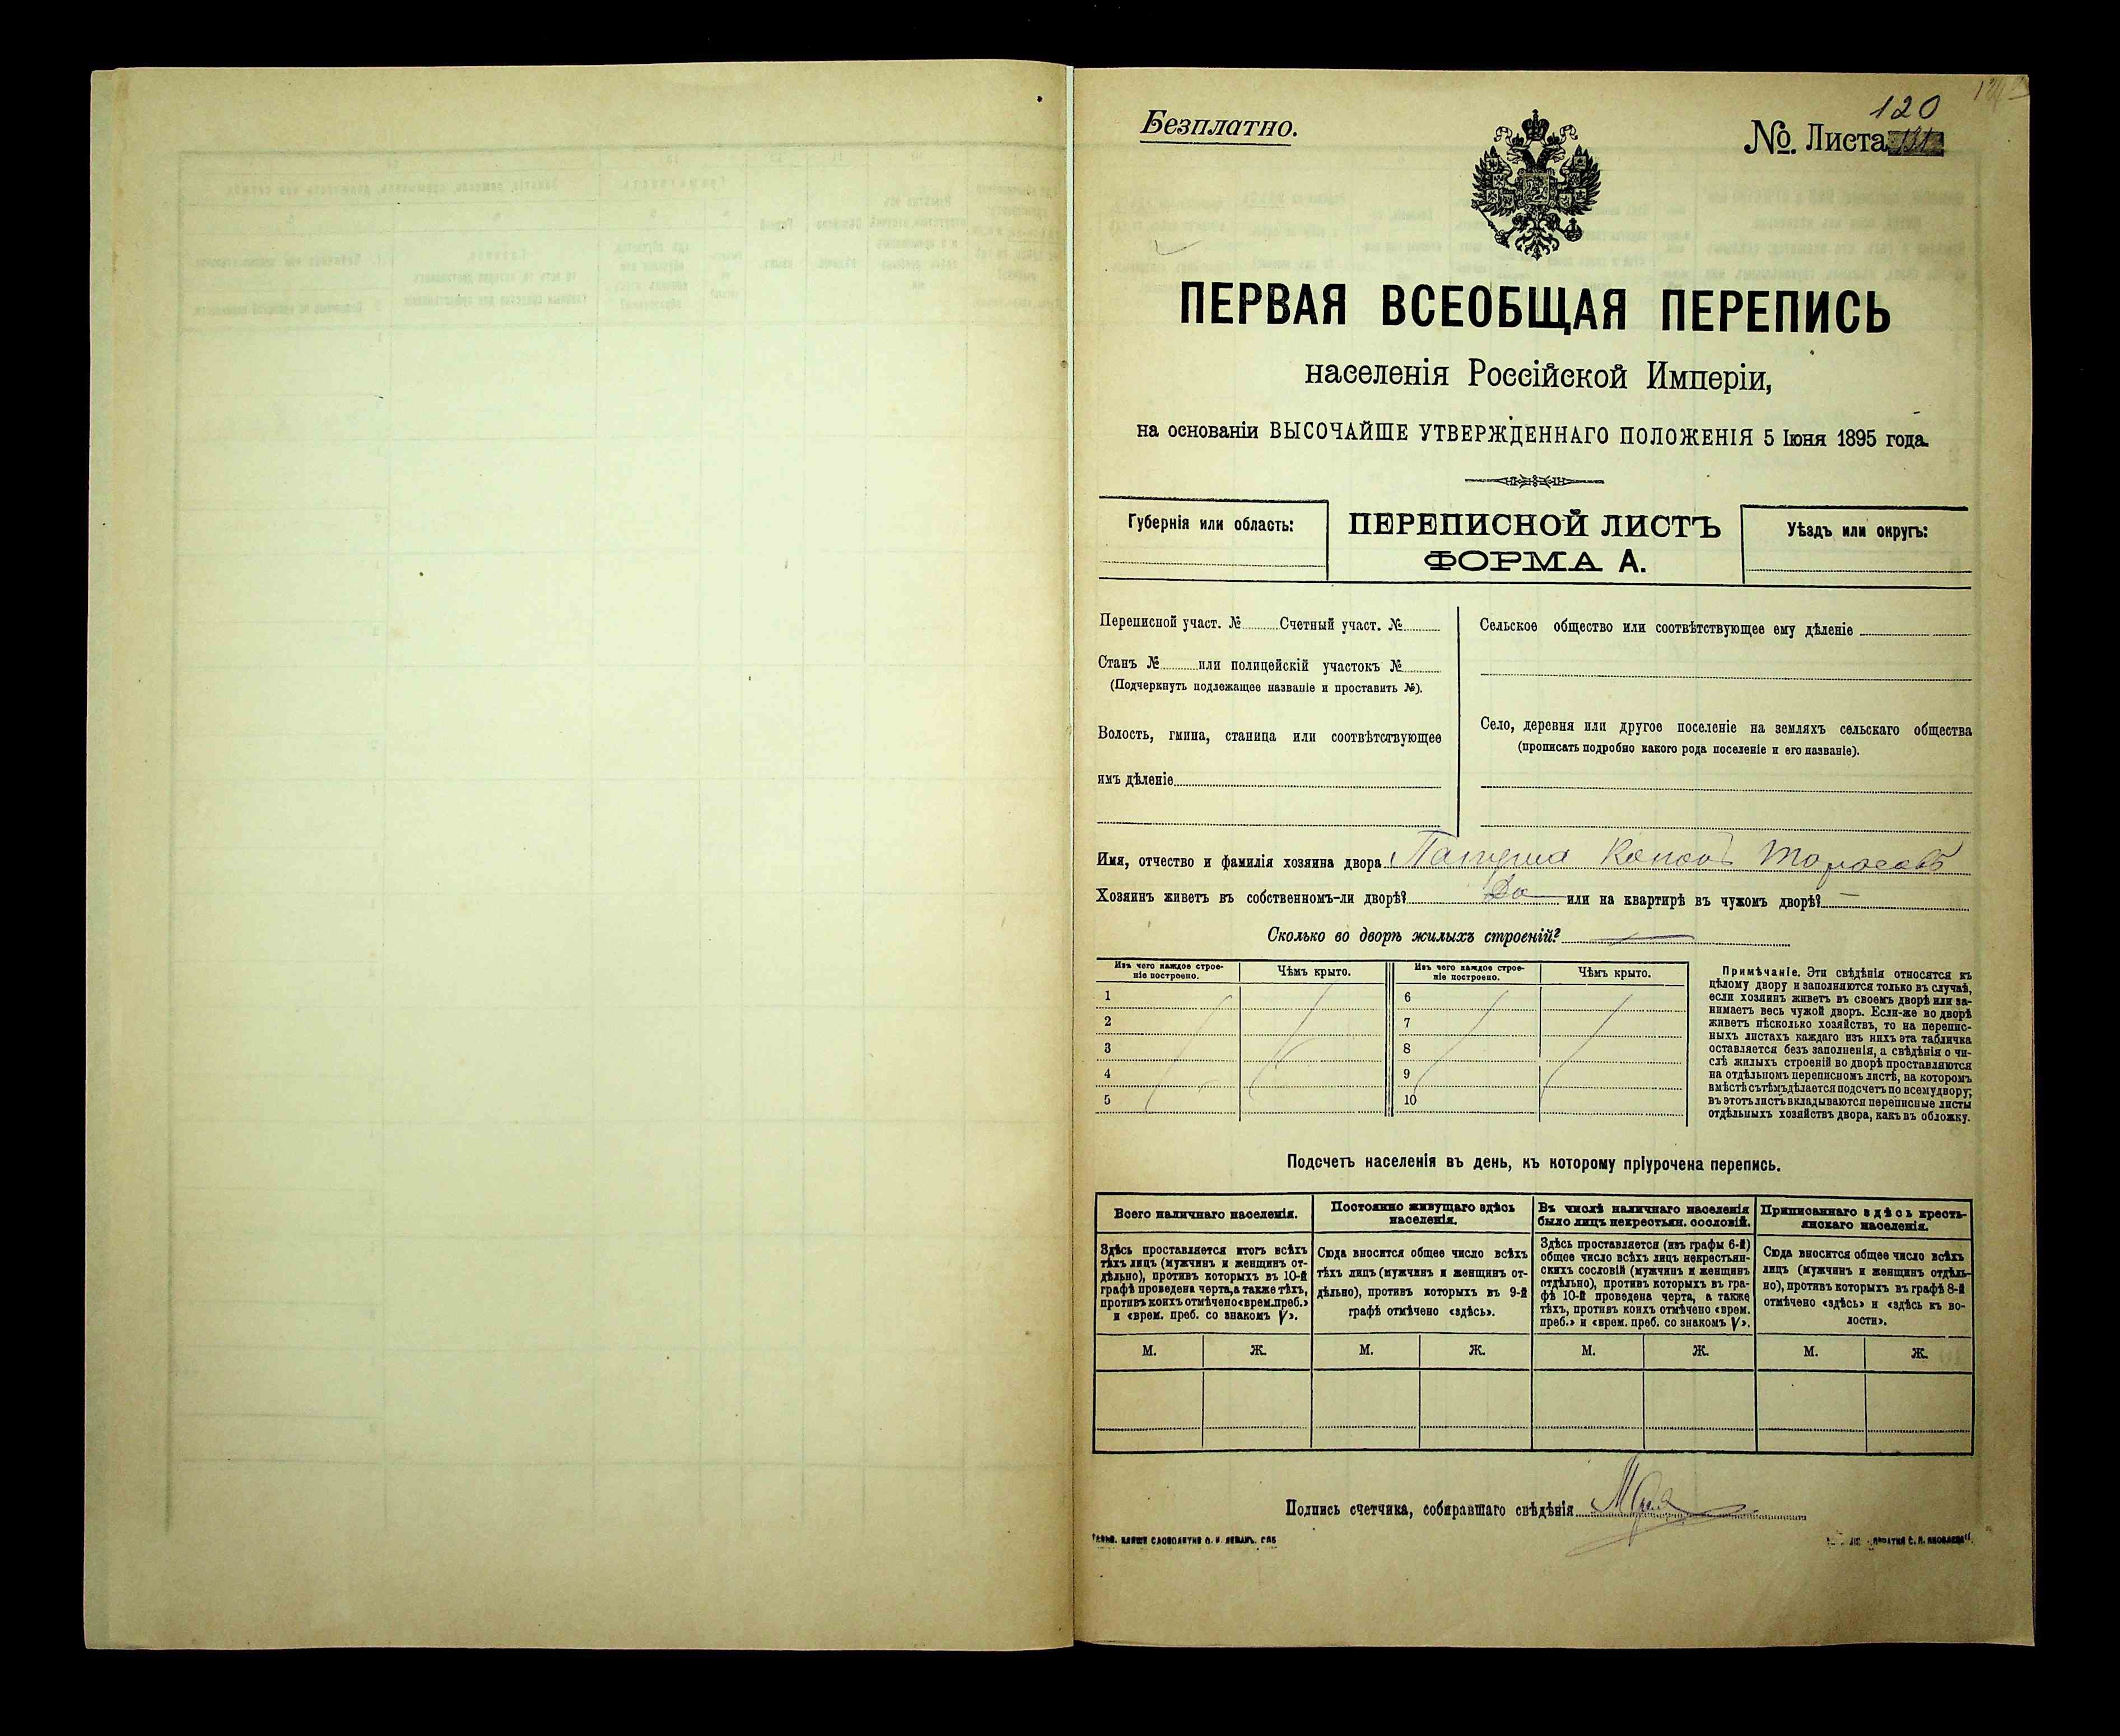 Безплатно.
120
№. Листа
ПЕРВАЯ ВСЕОБЩАЯ ПЕРЕПИСЬ
населенія Россійской Имперіи,
на основаніи ВЫСОЧАЙШЕ УТВЕРЖДЕННАГО ПОЛОЖЕНІЯ 5 Іюня 1895 года.
Губернія или область:
ПЕРЕПИСНОЙ ЛИСТЪ
ФОРМА А.
Уѣздъ или округъ:
Переписной участ. № Счетный участ. №
Станъ № или полицейскій участокъ №
(Подчеркнуть подлежащее названіе и проставить №).
Волость, гмина, станица или соотвѣтствующее
имъ дѣленіе
Сельское общество или соотвѣтствующее ему дѣленіе
Село, деревня или другое поселеніе на земляхъ сельскаго общества
(прописать подробно какого рода поселеніе и его названіе).
Имя, отчество и фамилія хозяина двора
Хозяинъ живетъ въ собственномъ-ли дворѣ? Да или на квартирѣ въ чужомъ дворѣ? —
Сколько во дворѣ жилыхъ строеній? —
Изъ чего каждое строе-
ніе построено.
Чѣмъ крыто.
Изъ чего каждое строе-
ніе построено.
Чѣмъ крыто.
1
2
3
4
5
6
7
8
9
10
Примѣчаніе. Эти свѣдѣнія относятся къ
цѣлому двору и заполняются только въ случаѣ,
если хозяинъ живетъ въ своемъ дворѣ или за-
нимаетъ весь чужой дворъ. Если-же во дворѣ
живетъ нѣсколько хозяйствъ, то на перепис-
ныхъ листахъ каждаго изъ нихъ эта табличка
оставляется безъ заполненія, а свѣдѣнія о чи-
слѣ жилыхъ строеній во дворѣ проставляются
на отдѣльномъ переписномъ листѣ, на которомъ
вмѣстѣ съ тѣмъ дѣлается подсчетъ по всему двору;
въ этотъ листъ вкладываются переписные листы
отдѣльныхъ хозяйствъ двора, какъ въ обложку.
Подсчетъ населенія въ день, къ которому пріурочена перепись.
Всего наличнаго населенія.
Здѣсь проставляется итогъ всѣхъ
тѣхъ лицъ (мужчинъ и женщинъ от-
дѣльно), противъ которыхъ въ 10-й
графѣ проведена черта, а также тѣхъ,
противъ коихъ отмѣчено «врем. преб.»
и «врем. преб. со знакомъ V».
Постоянно живущаго здѣсь
населенія.
Сюда вносится общее число всѣхъ
тѣхъ лицъ (мужчинъ и женщинъ от-
дѣльно), противъ которыхъ въ 9-й
графѣ отмѣчено «здѣсь».
Въ числѣ наличнаго населенія
было лицъ некрестьян. сословій.
Здѣсь проставляется (изъ графы 6-й)
общее число всѣхъ лицъ некрестьян-
скихъ сословій (мужчинъ и женщинъ
отдѣльно), противъ которыхъ въ гра-
фѣ 10-й проведена черта, а также
тѣхъ, противъ коихъ отмѣчено «врем.
преб.» и «врем. преб. со знакомъ V».
Приписаннаго здѣсь кресть-
янскаго населенія.
Сюда вносится общее число всѣхъ
лицъ (мужчинъ и женщинъ отдѣль-
но), противъ которыхъ въ графѣ 8-й
отмѣчено «здѣсь» и «здѣсь къ во-
лости».
М. Ж. М. Ж. М. Ж. М. Ж.
Подпись счетчика, собиравшаго свѣдѣнія